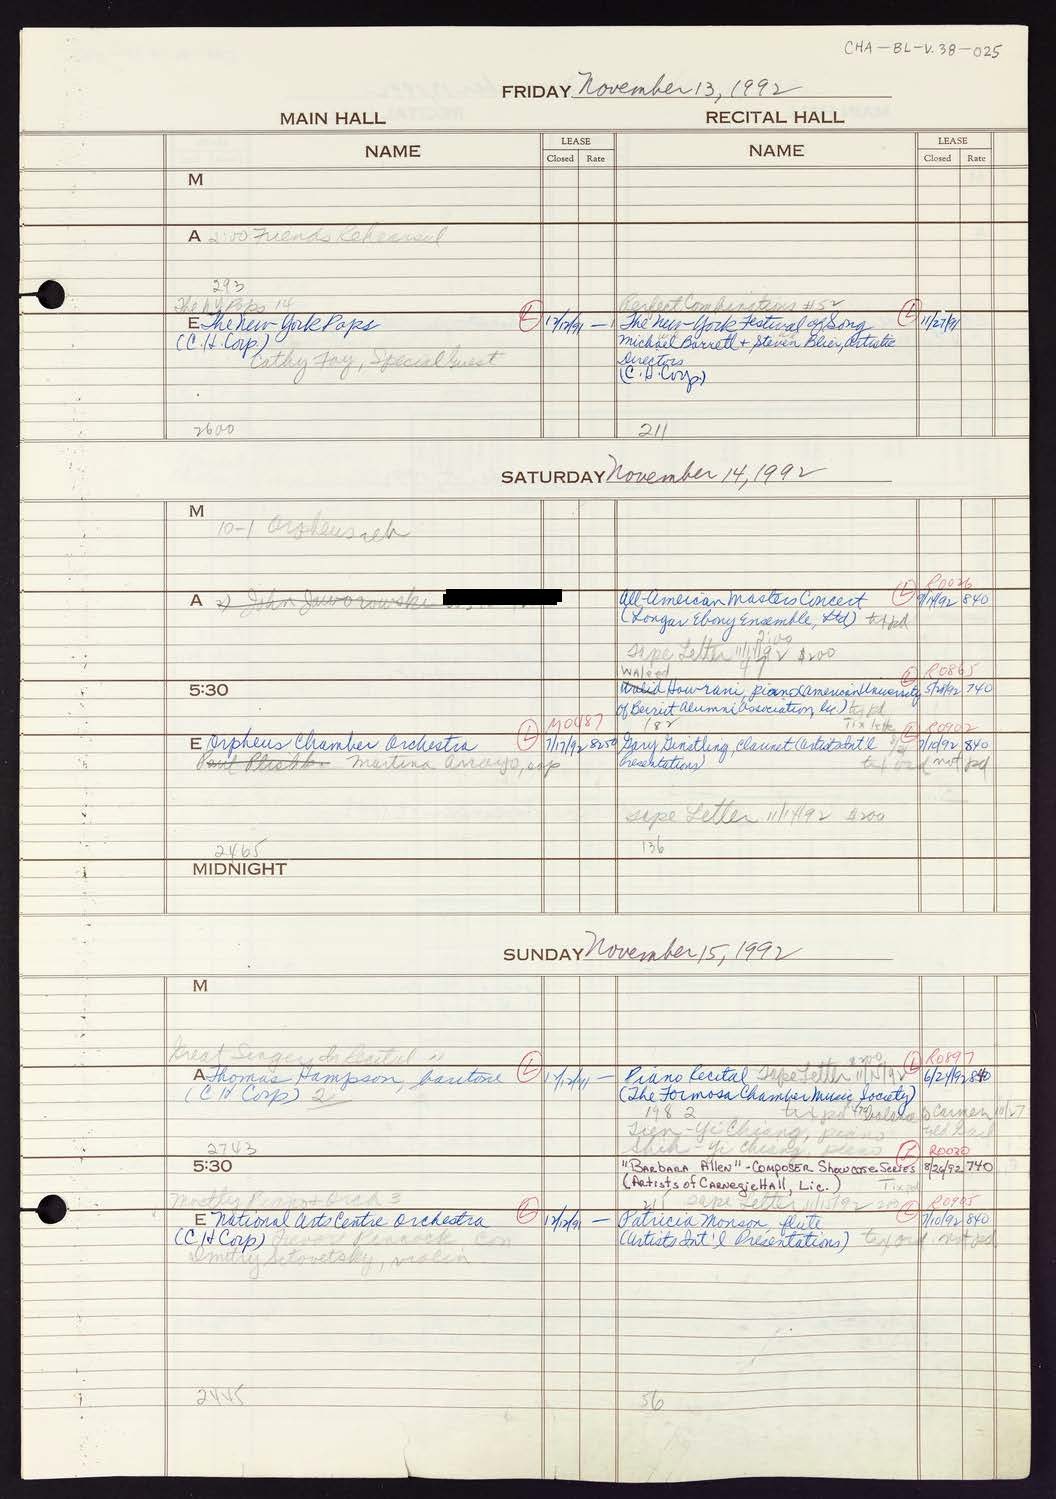 CHA-BL-V.38-025
FRIDAY November 13, 1992
MAIN HALL RECITAL HALL
NAME LEASE Closed Rate NAME LEASE Closed Rate
M
A 2:00 Friends Rehearsal
293
The NY Pops 14 Perfect Combinations #52
E The New York Pops L 12/12/91 — The New York Festival of Song L 11/27/91
(C.H. Corp.) Michael Barrett + Steven Blier, Artistic
Cathy Fay, Special Guest Directors
(C.H. Corp.)
2600 211
SATURDAY November 14, 1992
M
10-1 Orpheus reh
R0026
A John Jaworowski All-American Masters Concert L 9/14/92 840
(Longar Ebony Ensemble, Ltd) tix pd
2:00
Tape Letter 11/11/92 $200
Waleed R0865
5:30 Walid Howrani, piano (American University L 5/28/92 740
of Beirut Alumni Association, Inc) tix pd
M0487 182 R0902
E Orpheus Chamber Orchestra L 7/17/92 8250 Gary Ginstling, clarinet (Artists Int'l L 7/10/92 840
Paul Plishka Martina Arroyo, sop Presentations) tix ord not pd
Tape Letter 11/14/92 $200
2465 136
MIDNIGHT
SUNDAY November 15, 1992
M
Great Singers In Recital $200 R0897
A Thomas Hampson, baritone L — Piano Recital Tape Letter 11/15/92 L 6/24/92 840
(CH Corp) 2 (The Formosa Chamber Music Society)
198 2 tix pd Carmen 10/27
Tien-Yi Chiang, piano
2743 Shih-Yi Chiang, piano R0020
5:30 "Barbara Allen" - Composer Showcase Series L 8/26/92 740
(Artists of Carnegie Hall, Inc.) Tix pd
Orch 3 Tape Letter 11/15/92 R0905
E National Arts Centre Orchestra L 12/12/91 — Patricia Monson, flute L 7/10/92 840
(CH Corp) Trevor Pinnock Con (Artists Int'l Presentations) tix ord not pd
Dmitry Sitkovetsky, violin
2445 56